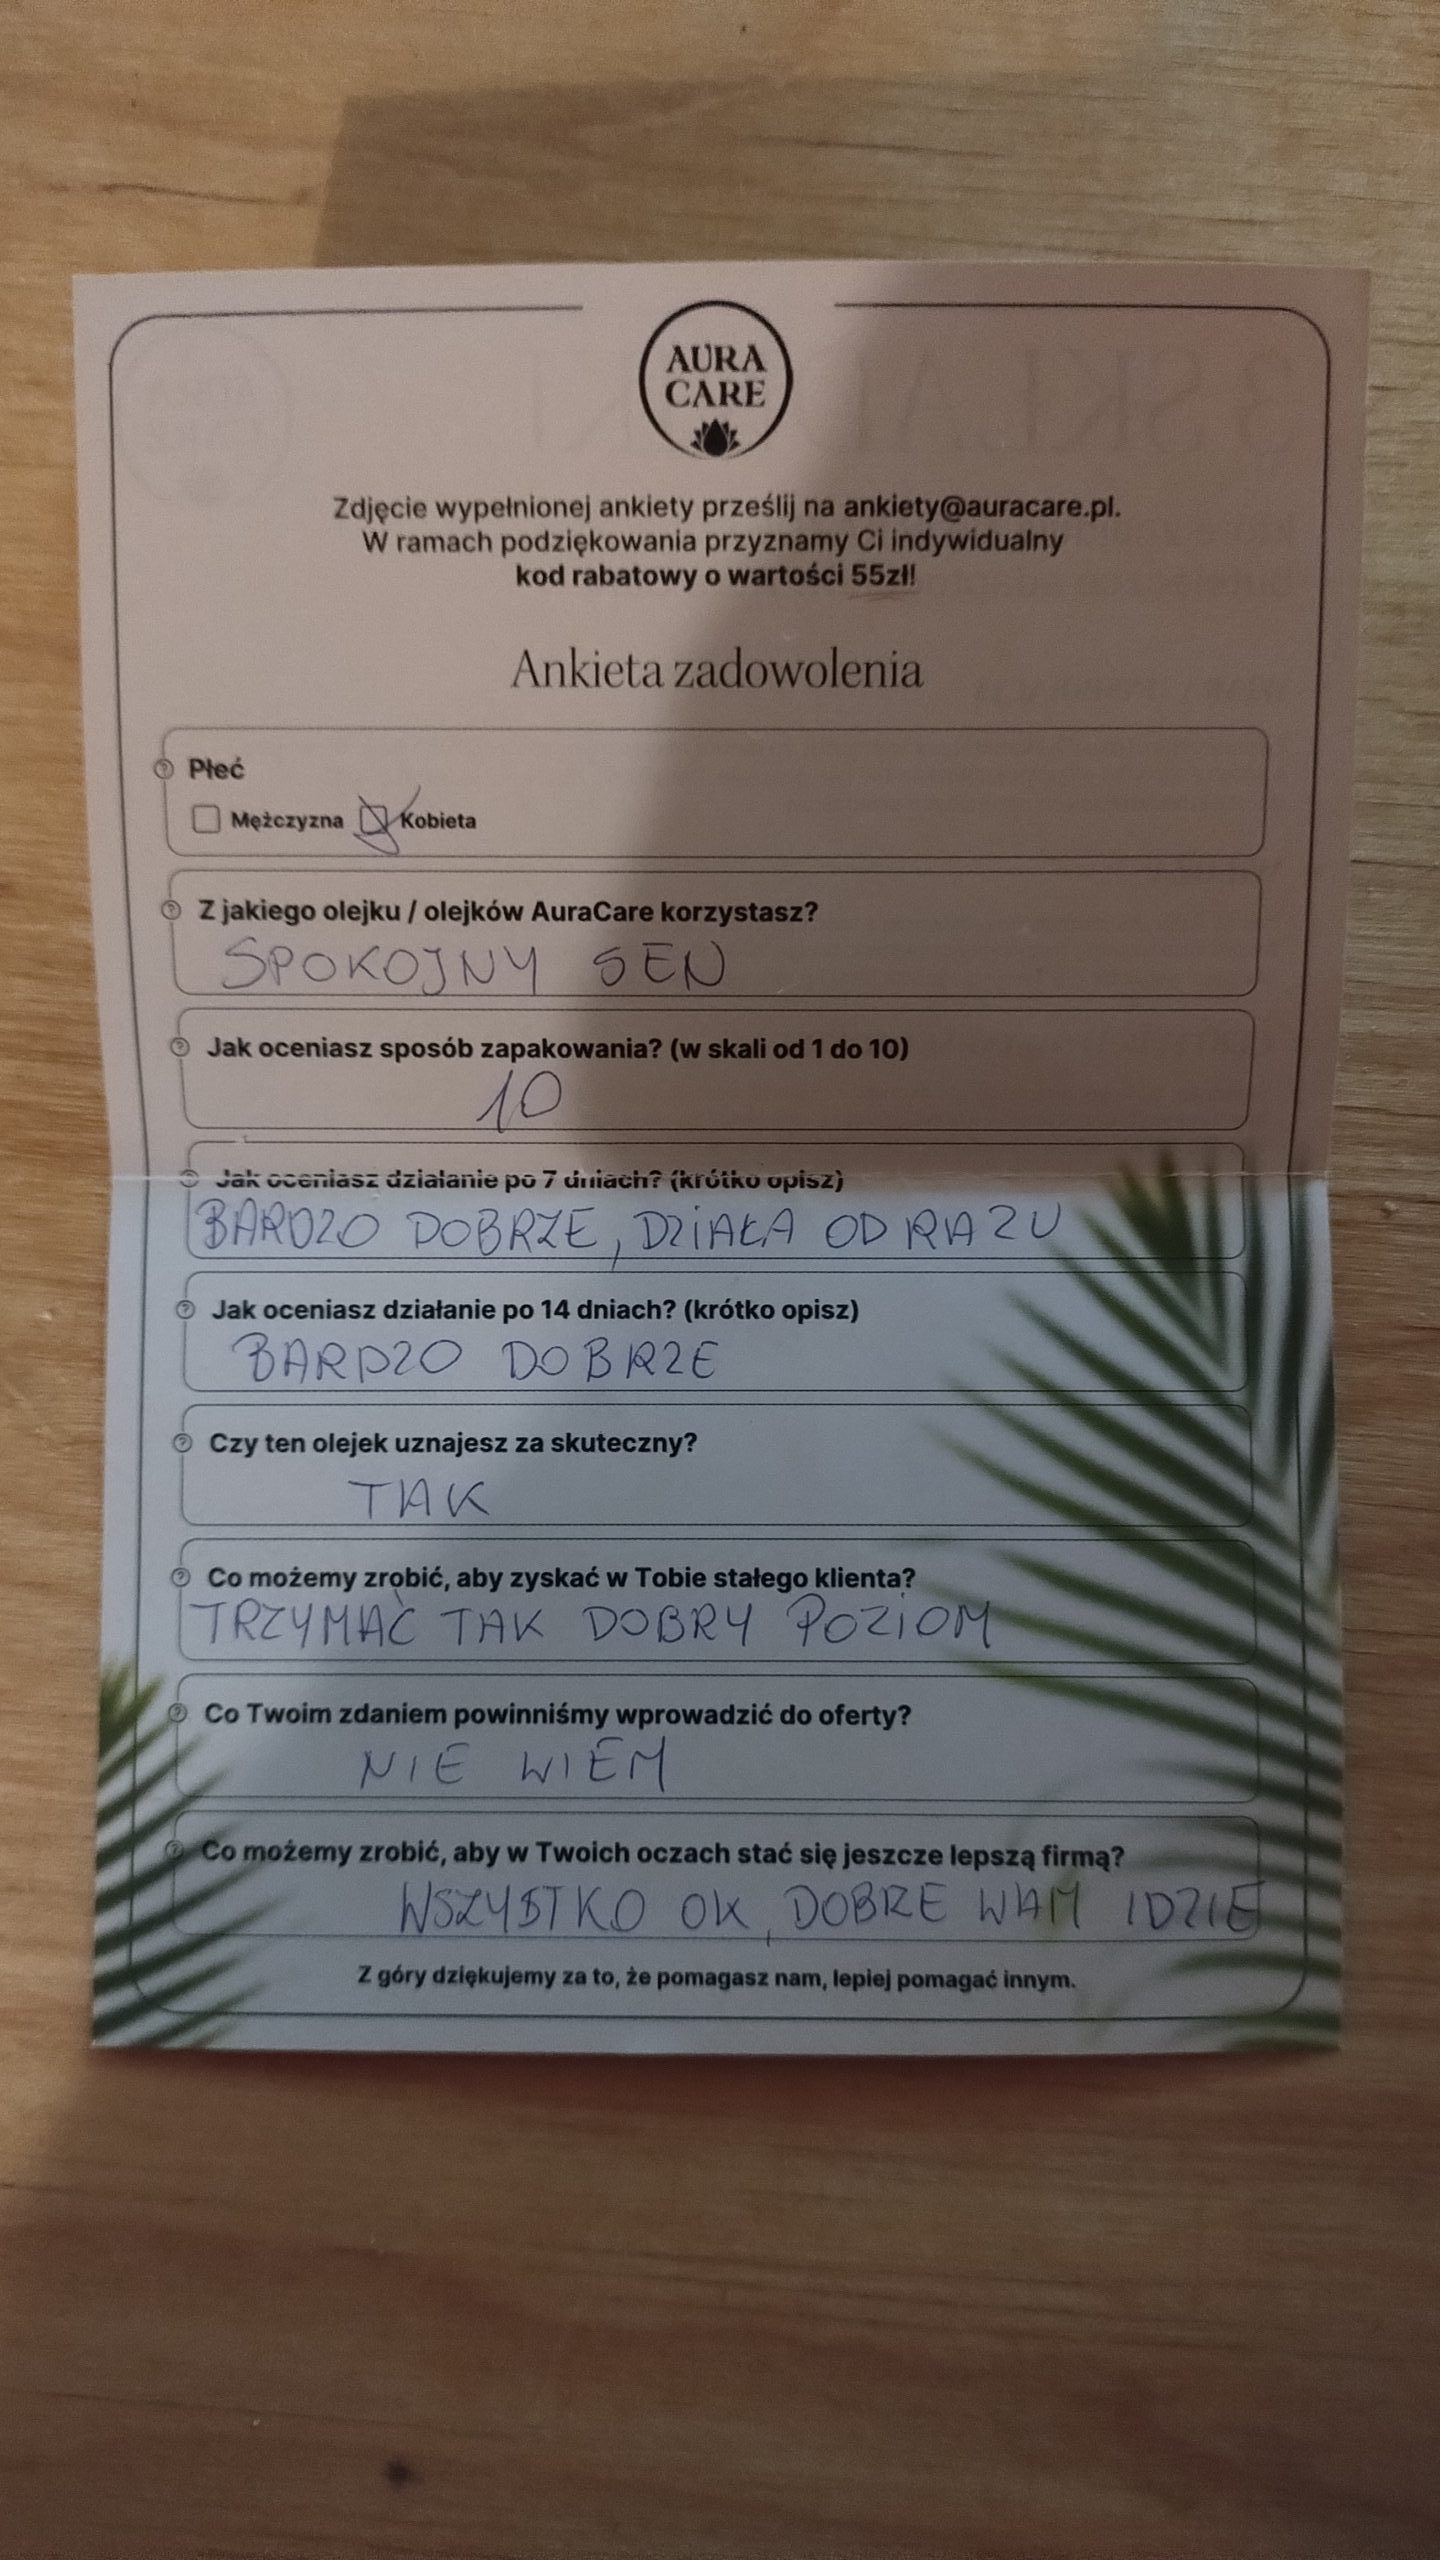 AURA
CARE
Zdjęcie wypełnionej ankiety prześlij na ankiety@auracare.pl.
W ramach podziękowania przyznamy Ci indywidualny
kod rabatowy o wartości 55zł!
Ankieta zadowolenia
Płeć
Mężczyzna Kobieta
Z jakiego olejku / olejków AuraCare korzystasz?
SPOKOJNY SEN
Jak oceniasz sposób zapakowania? (w skali od 1 do 10)
10
Jak oceniasz działanie po 7 dniach? (krótko opisz)
BARDZO DOBRZE, DZIAŁA OD RAZU
Jak oceniasz działanie po 14 dniach? (krótko opisz)
BARDZO DOBRZE
Czy ten olejek uznajesz za skuteczny?
TAK
Co możemy zrobić, aby zyskać w Tobie stałego klienta?
TRZYMAĆ TAK DOBRY POZIOM
Co Twoim zdaniem powinniśmy wprowadzić do oferty?
NIE WIEM
Co możemy zrobić, aby w Twoich oczach stać się jeszcze lepszą firmą?
WSZYSTKO OK, DOBRZE WAM IDZIE
Z góry dziękujemy za to, że pomagasz nam, lepiej pomagać innym.